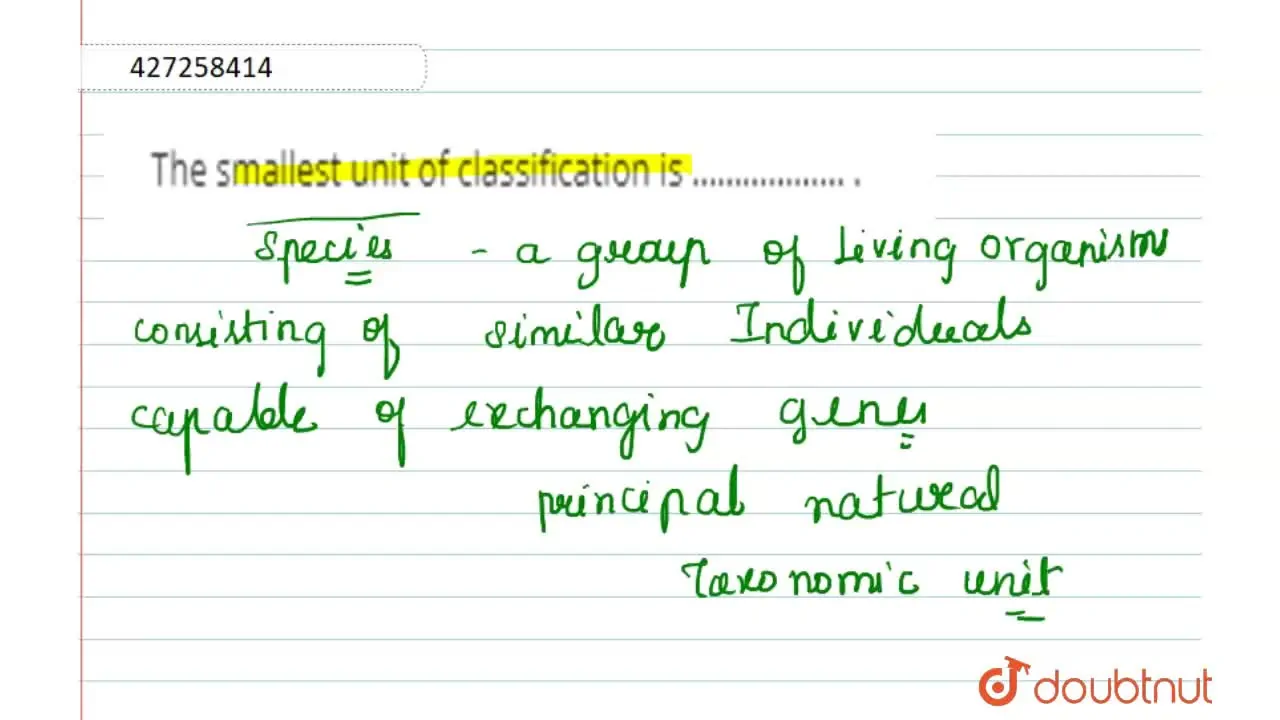 427258414
The smallest unit of classification is .................. .
Species - a group of living organism
consisting of similar Individuals
capable of exchanging genes
principal natural
Taxonomic unit
doubtnut